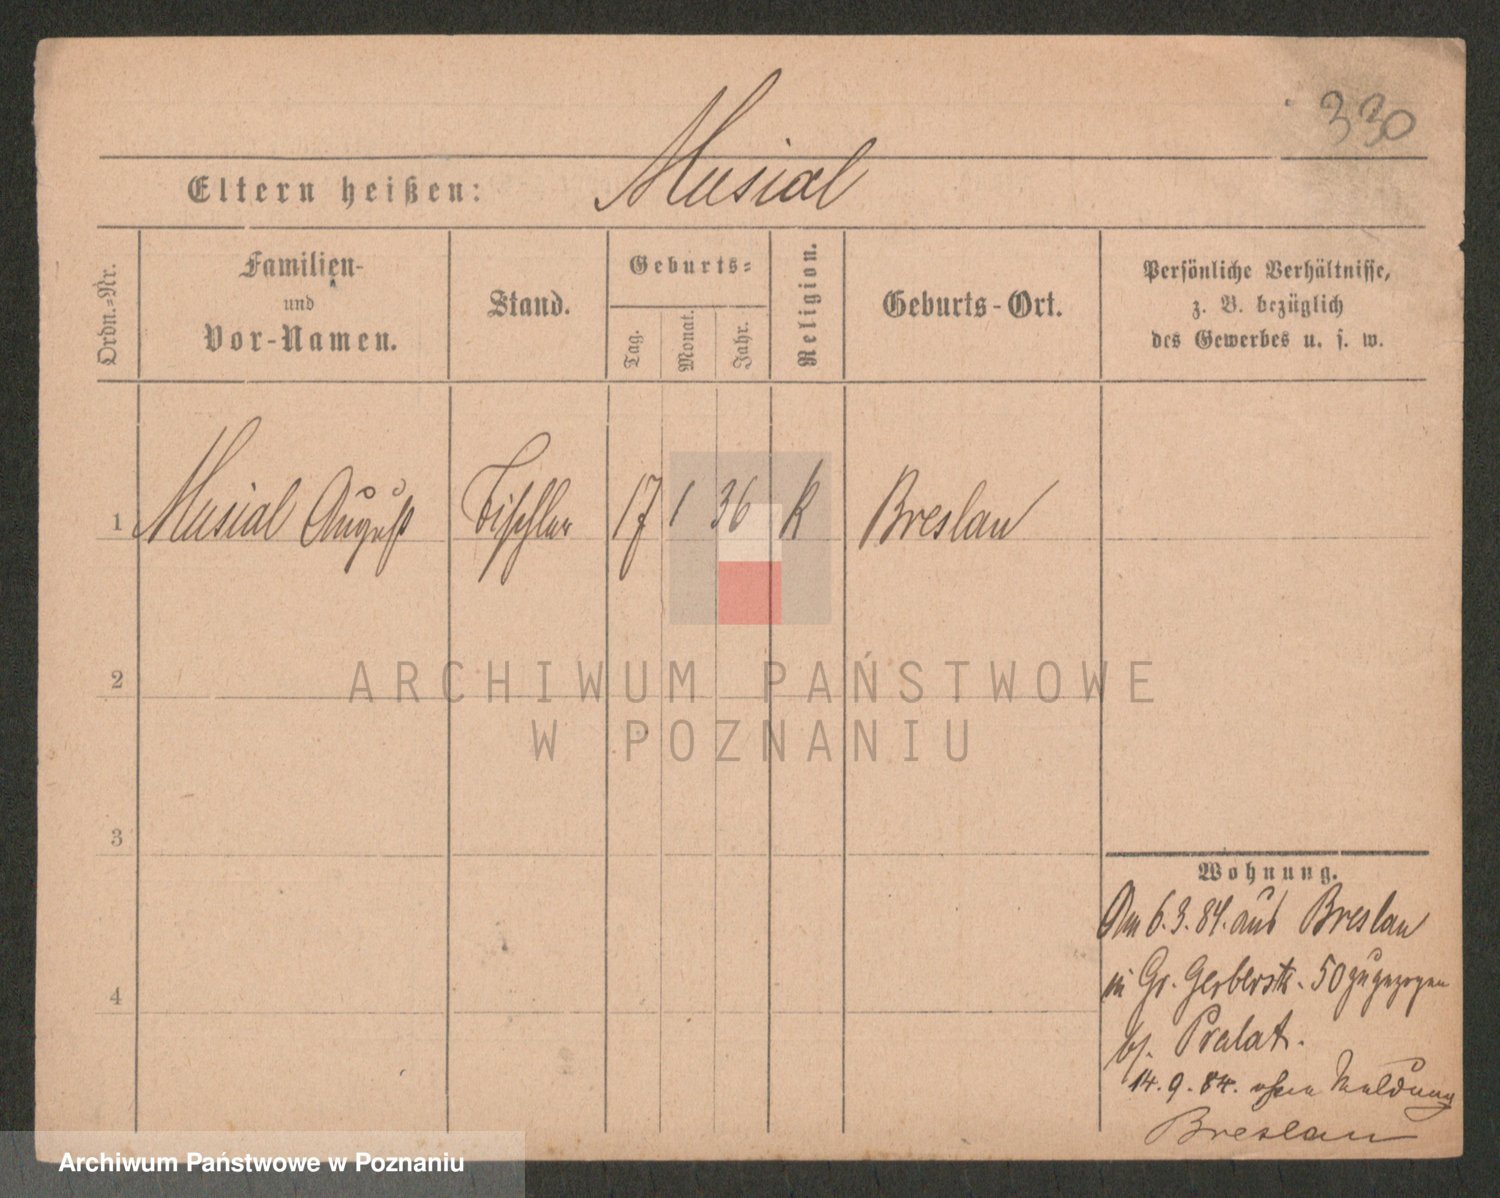 330
Musial
Eltern heißen:
Ordn.-Nr.
Familien-
und
Vor-Namen.
Stand.
Geburts-
Tag.
Monat.
Jahr.
Religion.
Geburts-Ort.
Persönliche Verhältnisse,
z. B. bezüglich
des Gewerbes u. s. w.
1 Musial August Tischler 17 1 36 K Breslau
ARCHIWUM PAŃSTWOWE
W POZNANIU
2
3
4
Wohnung.
Am 6.3.84. aus Breslau
in Gr. Gerberstr. 50 zugezogen
bj. Pralat.
14.9.84. ohne Meldung
Breslau
Archiwum Państwowe w Poznaniu